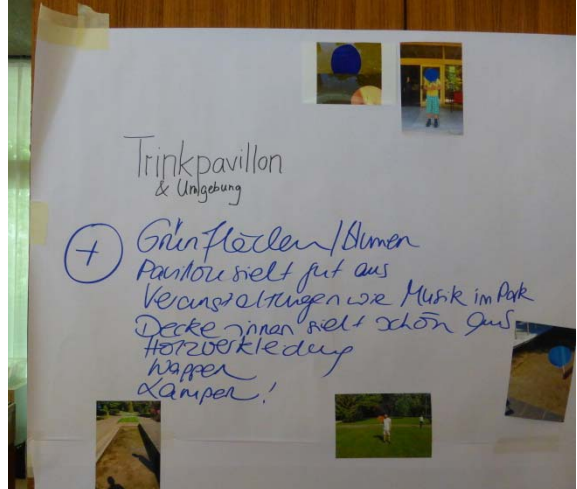 Trinkpavillon
& Umgebung
+ Grünflächen/Blumen
Pavillon sieht gut aus
Veranstaltungen wie Musik im Park
Decke innen sieht schön aus
Holzverkleidung
Wappen
Lampen!